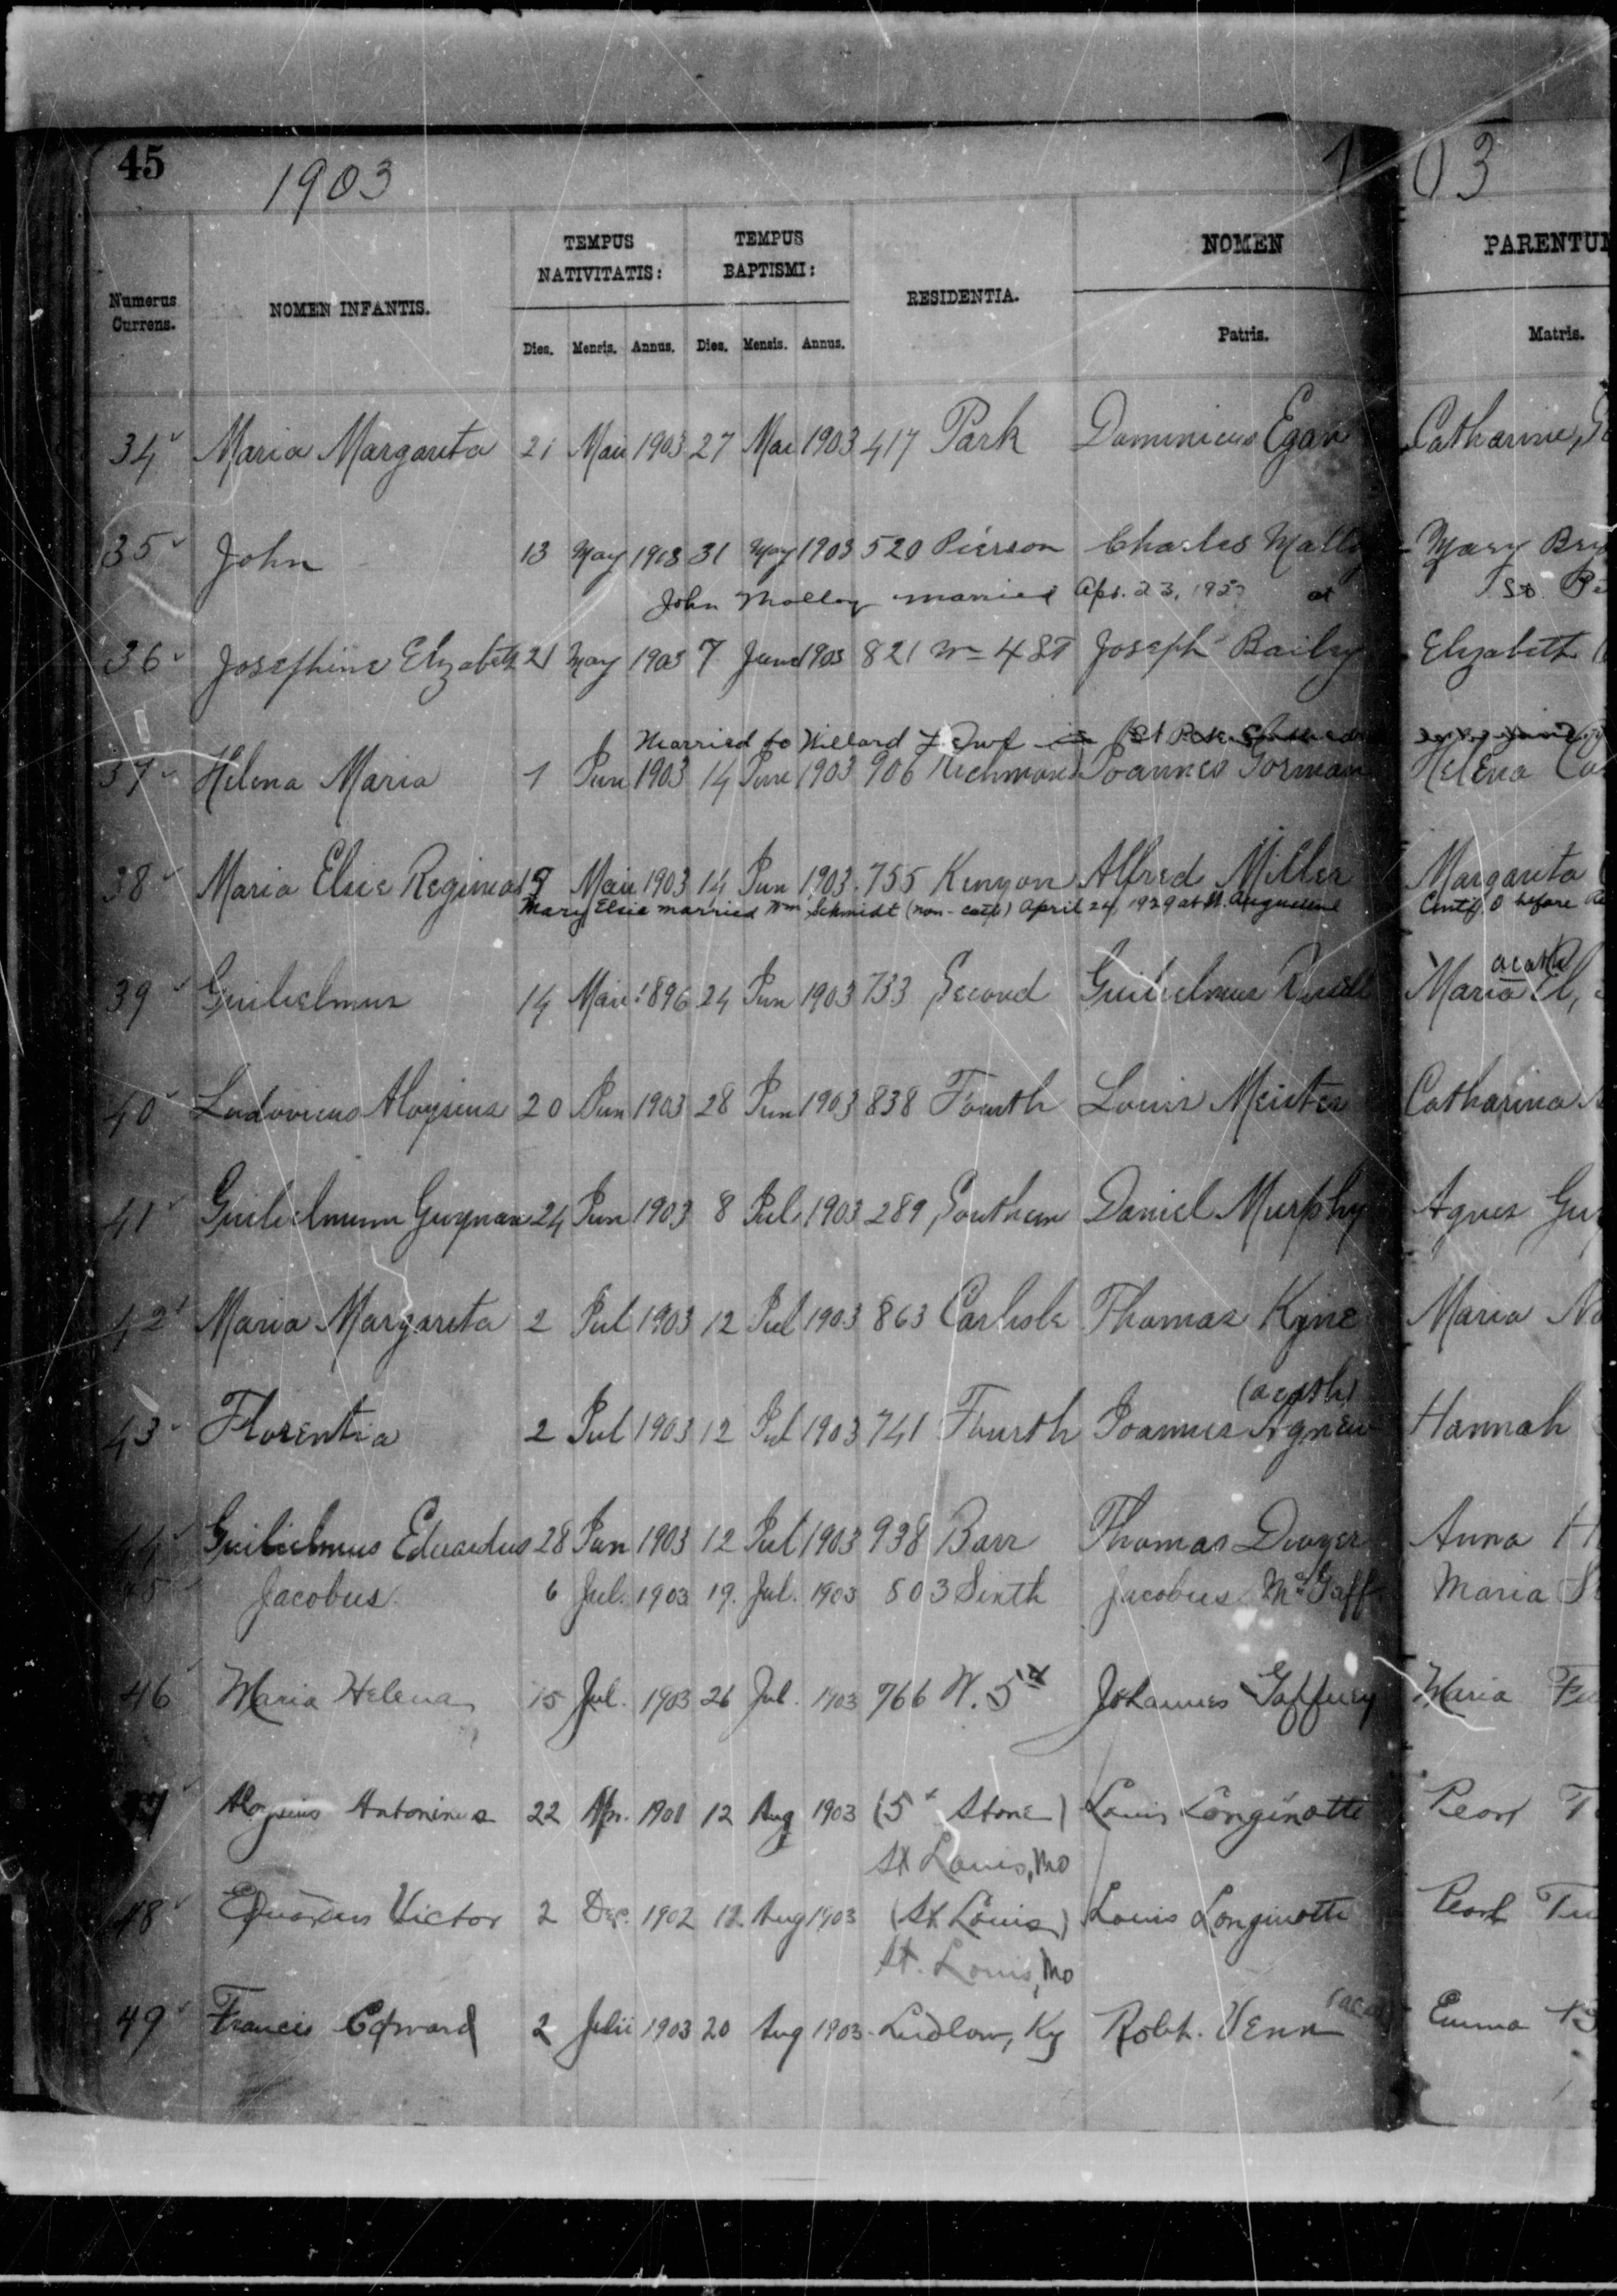 45
1903
1 03
Numerus Currens.
NOMEN INFANTIS.
TEMPUS NATIVITATIS:
TEMPUS BAPTISMI:
RESIDENTIA.
NOMEN
PARENTUM
Dies. Mensis. Annus. Dies. Mensis. Annus.
Patris.
Matris.
34 Maria Margarita 21 Maii 1903 27 Mai 1903 417 Park Dominicus Egan Catharine
35 John 13 May 1903 31 May 1903 520 Pierson Charles Malloy Mary
John Molloy married Apr. 23, at
36 Josephine Elizabeth 21 May 1903 7 June 1903 821 W 4 ST Joseph Baily Elizabeth
Married to Willard
37 Helena Maria 1 Jun 1903 14 June 1903 906 Richmond Joannes Gorman Helena
38 Maria Elsie Regina 19 Maii 1903 14 Jun 1903 755 Kenyon Alfred Miller Margarita
Mary Elsie married Wm Schmidt (non-cath) April 24, 1929 at St. Augustine before
39 Guilielmus 14 Maii 1896 24 Jun 1903 733 Second Guilielmus Maria
acath
40 Ludovicus Aloysius 20 Jun 1903 28 Jun 1903 838 Fourth Louis Meister Catharina
41 Guilielmum Guynan 24 Jun 1903 8 Jul 1903 289 Southern Daniel Murphy Agnes
42 Maria Margarita 2 Jul 1903 12 Jul 1903 863 Carlisle Thomas Kyne Maria
(acath)
43 Florentia 2 Jul 1903 12 Jul 1903 741 Fourth Joannes Agnew Hannah
44 Guilielmus Eduardus 28 Jun 1903 12 Jul 1903 938 Barr Thomas Dwyer Anna
45 Jacobus 6 Jul. 1903 19. Jul. 1903 803 Sixth Jacobus McGaff Maria
46 Maria Helena 15 Jul. 1903 26 Jul. 1903 766 W. 5th Johannes Gaffney Maria
47 Aloysius Antoninus 22 Apr. 1901 12 Aug 1903 (5 & Stone) Louis Longinotti Pearl
St Louis, Mo
48 Eduardus Victor 2 Dec. 1902 12 Aug 1903 (St. Louis) Louis Longinotti Pearl
St. Louis, Mo
49 Francis Edward 2 Julii 1903 20 Aug 1903 Ludlow, Ky Robt. Venn Emma